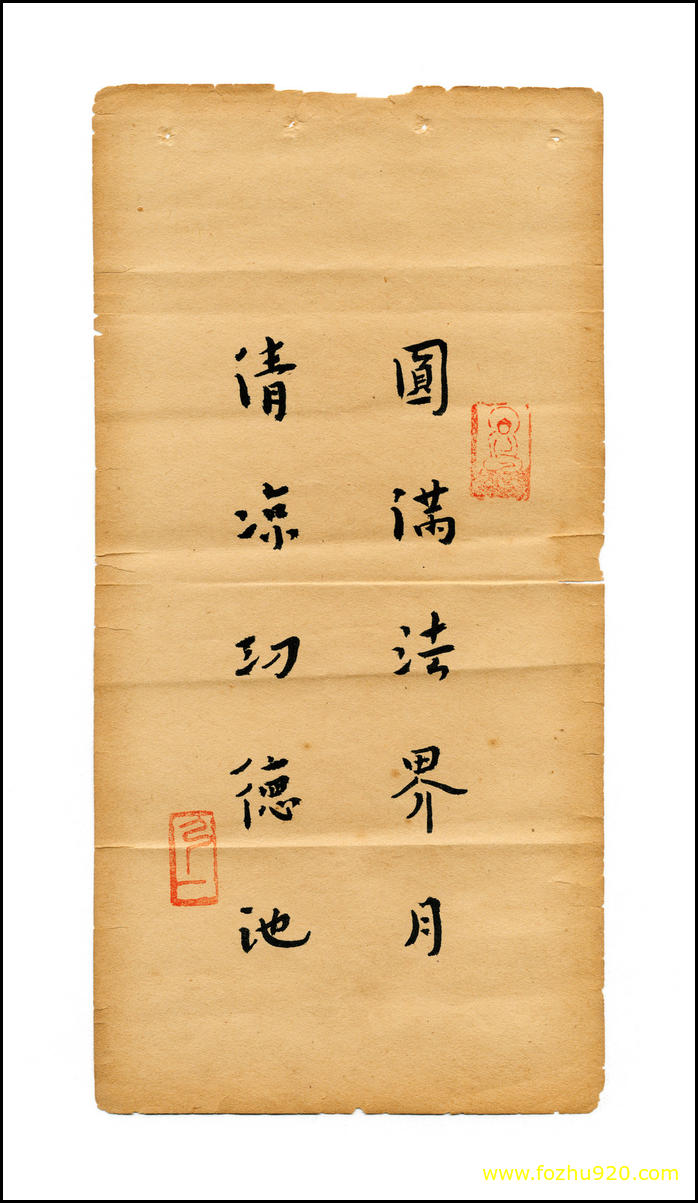 圓滿法界月
清涼功德池
www.fozhu920.com